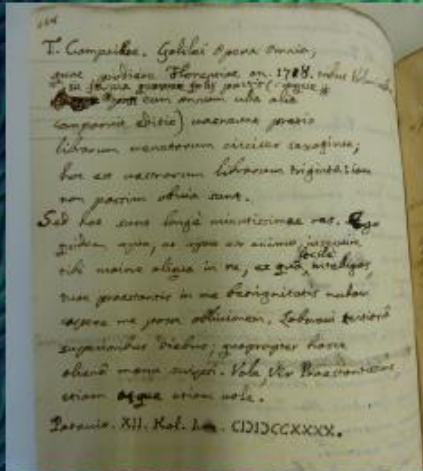 T. Campailae. Galilei Opera Omnia,
quae prodiere Florentiae an. 1718. tribus Voluminibus
in forma quartae folij partis (neque
enim post eum annum ulla alia
comparuit editio) vaeneunt pretio
librarum venetarum circiter sexaginta;
hoc est vestrarum librarum triginta: iam
non passim obvia sunt.
Sed hae sunt longè minutissimae res. Ego
quidem opto, ac opto ex animo, iniungas
tibi maius aliquid in re, ex qua facile intelligas,
tuae praestantis in me benignitatis nullam
capere me posse oblivionem. Laboravi
superioribus diebus; quapropter hasce
alienâ manu scripsi. Vale, Vir Praestantissime,
etiam atque etiam vale.
Patavio. XII. Kal. CIƆIƆCCXXXX.